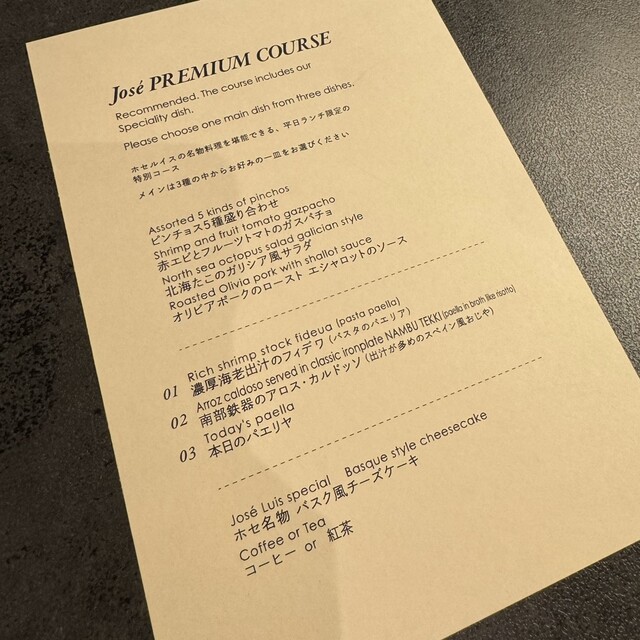 José PREMIUM COURSE
Recommended. The course includes our
Speciality dish.
Please choose one main dish from three dishes.
ホセルイスの名物料理を堪能できる、平日ランチ限定の
特別コース
メインは3種の中からお好みの一皿をお選びください
Assorted 5 kinds of pinchos
ピンチョス5種盛り合わせ
Shrimp and fruit tomato gazpacho
赤エビとフルーツトマトのガスパチョ
North sea octopus salad galician style
北海たこのガリシア風サラダ
Roasted Olivia pork with shallot sauce
オリビアポークのロースト エシャロットのソース
Rich shrimp stock fideua (pasta paella)
01 濃厚海老出汁のフィデワ (パスタのパエリア)
Arroz caldoso served in classic ironplate NAMBU TEKKI (paella in broth like risotto)
02 南部鉄器のアロス・カルドッソ (出汁が多めのスペイン風おじや)
Today's paella
03 本日のパエリヤ
José Luis special Basque style cheesecake
ホセ名物 バスク風チーズケーキ
Coffee or Tea
コーヒー or 紅茶